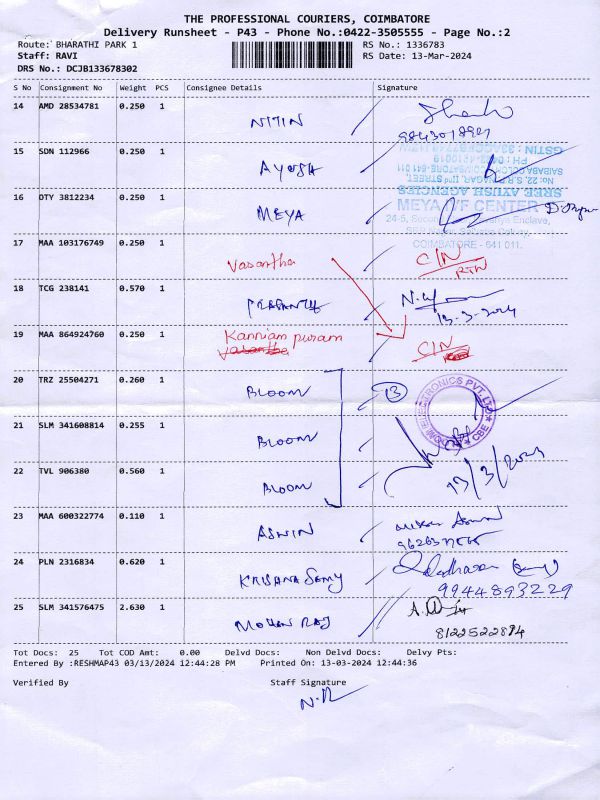 THE PROFESSIONAL COURIERS, COIMBATORE
Delivery Runsheet - P43 - Phone No.:0422-3505555 - Page No.:2
Route: BHARATHI PARK 1 RS No.: 1336783
Staff: RAVI RS Date: 13-Mar-2024
DRS No.: DCJB133678302
S No Consignment No Weight PCS Consignee Details Signature
14 AMD 28534781 0.250 1 NITIN
15 SDN 112966 0.250 1 AYUSH
GSTIN :
SREE AYUSH AGENCIES
16 DTY 3812234 0.250 1 MEYA
MEYA IVF CENTER
COIMBATORE - 641 011.
17 MAA 103176749 0.250 1 Vasantha C/N
RTN
18 TCG 238141 0.570 1 PRASANTH
13-3-2024
19 MAA 864924760 0.250 1 Kanniampuram C/N
20 TRZ 25504271 0.260 1 BLOOM 3
BLOOM ELECTRONICS PVT. LTD. CBE
21 SLM 341608814 0.255 1 BLOOM
22 TVL 906380 0.560 1 BLOOM 13/3/2024
23 MAA 600322774 0.110 1 ASWIN
24 PLN 2316834 0.620 1 KRISHNA SAMY
9944893229
25 SLM 341576475 2.630 1 MOHAN RAJ
8122522894
Tot Docs: 25 Tot COD Amt: 0.00 Delvd Docs: Non Delvd Docs: Delvy Pts:
Entered By :RESHMAP43 03/13/2024 12:44:28 PM Printed On: 13-03-2024 12:44:36
Verified By Staff Signature